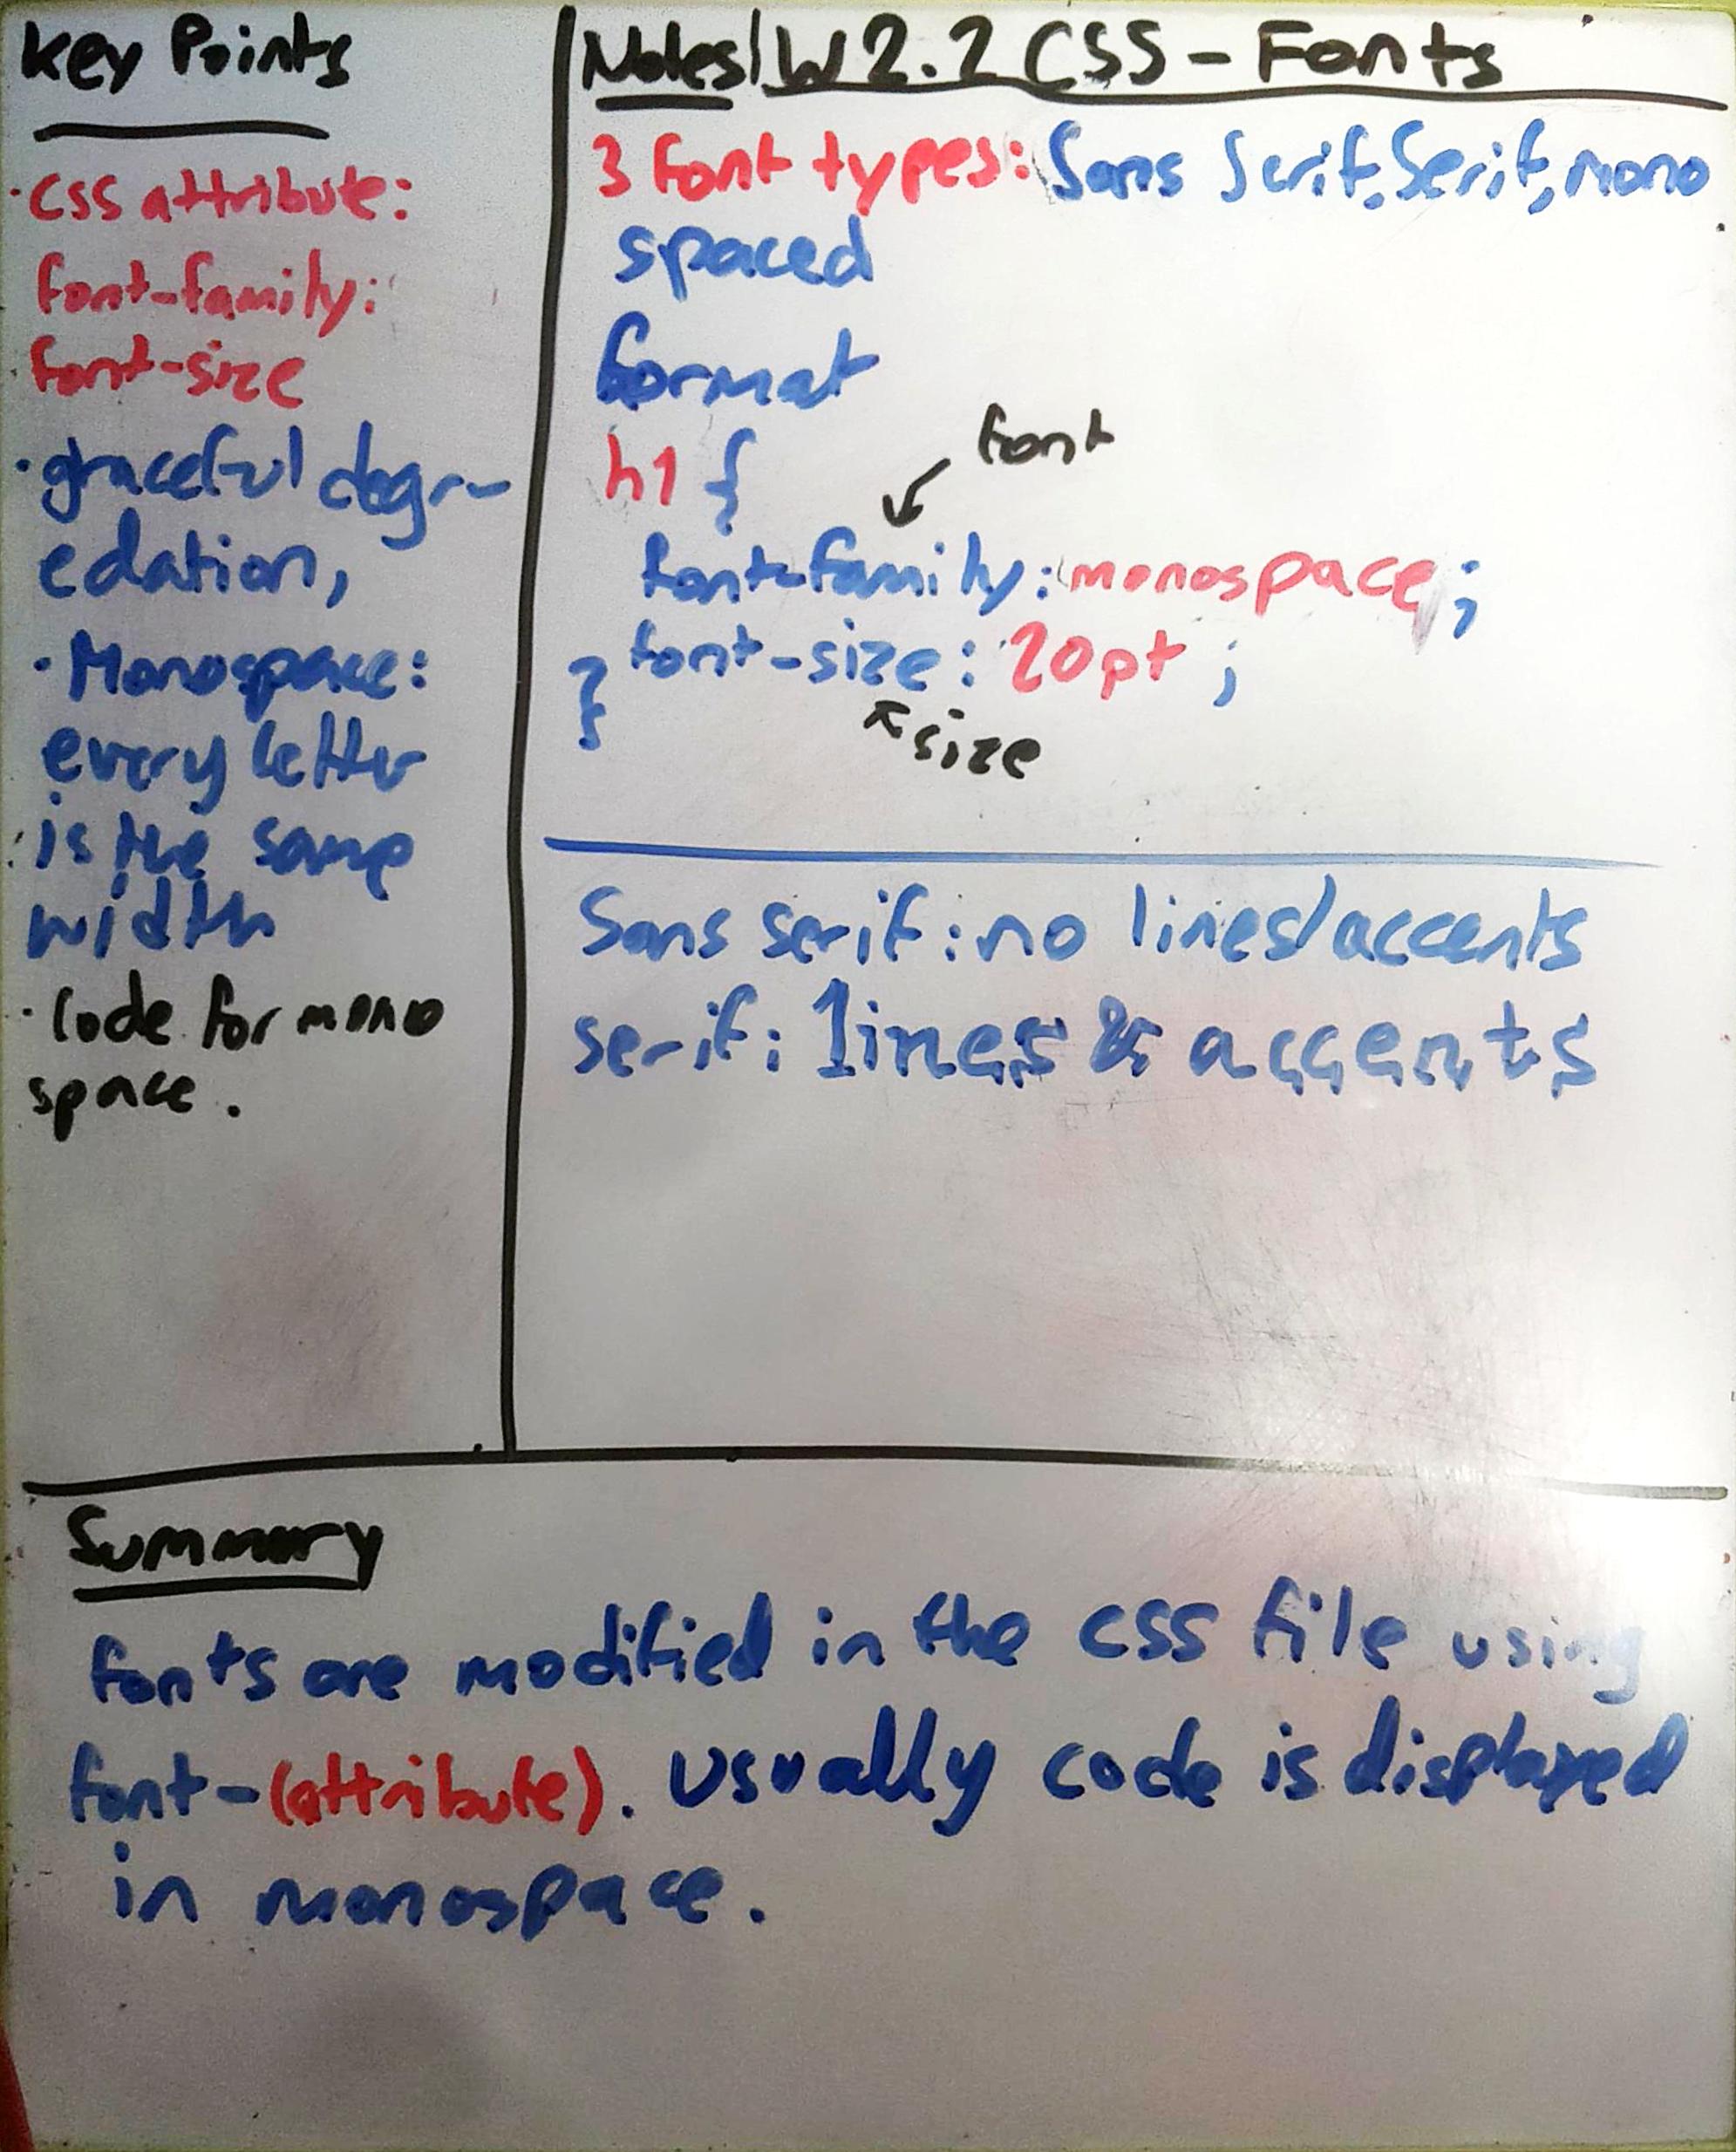 Key Points
• CSS attribute:
font-family:
font-size
• graceful degr-
edation,
• Monospace:
every letter
is the same
width
• Code for mono
space.
Notes| W2.2 CSS - Fonts
3 font types: Sans Serif, Serif, mono
spaced
format
font
h1 {
font-family: monospace;
font-size: 20pt;
}
size
Sans serif: no lines/accents
serif: lines & accents
Summary
fonts are modified in the css file using
font-(attribute). Usually code is displayed
in monospace.